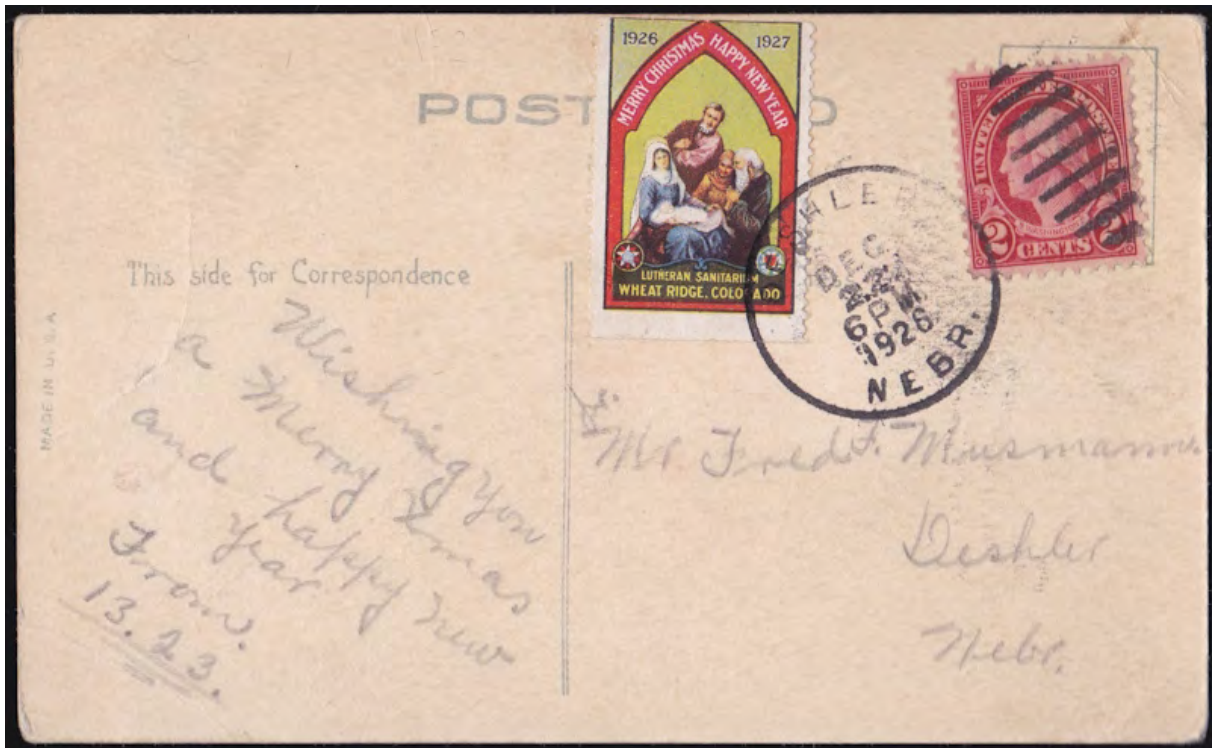 POST
1926 1927
MERRY CHRISTMAS HAPPY NEW YEAR
LUTHERAN SANITARIUM
WHEAT RIDGE, COLORADO
UNITED STATES POSTAGE
WASHINGTON
2 CENTS 2
DEC
6 PM
1926
NEBR.
This side for Correspondence
MADE IN U.S.A
Wishing you
a Merry Xmas
and happy new
year
From.
13.23.
Mr Fred F. Musmann.
Deshler
Nebr.